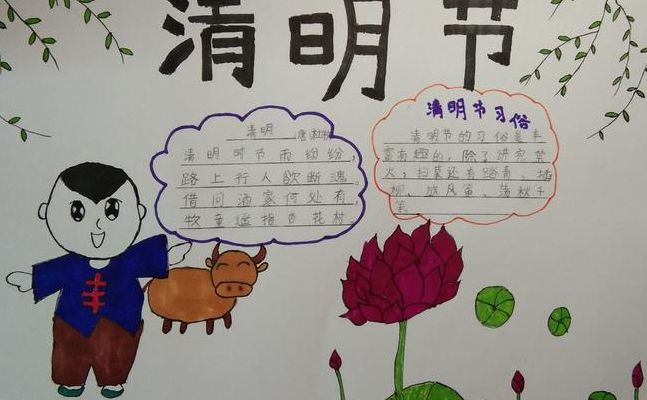 清明节
清明 唐 杜牧
清明时节雨纷纷，
路上行人欲断魂。
借问酒家何处有，
牧童遥指杏花村。
清明节习俗
清明节的习俗是丰
富有趣的，除了讲究禁
火，扫墓还有踏青、插
柳、放风筝、荡秋千
等。